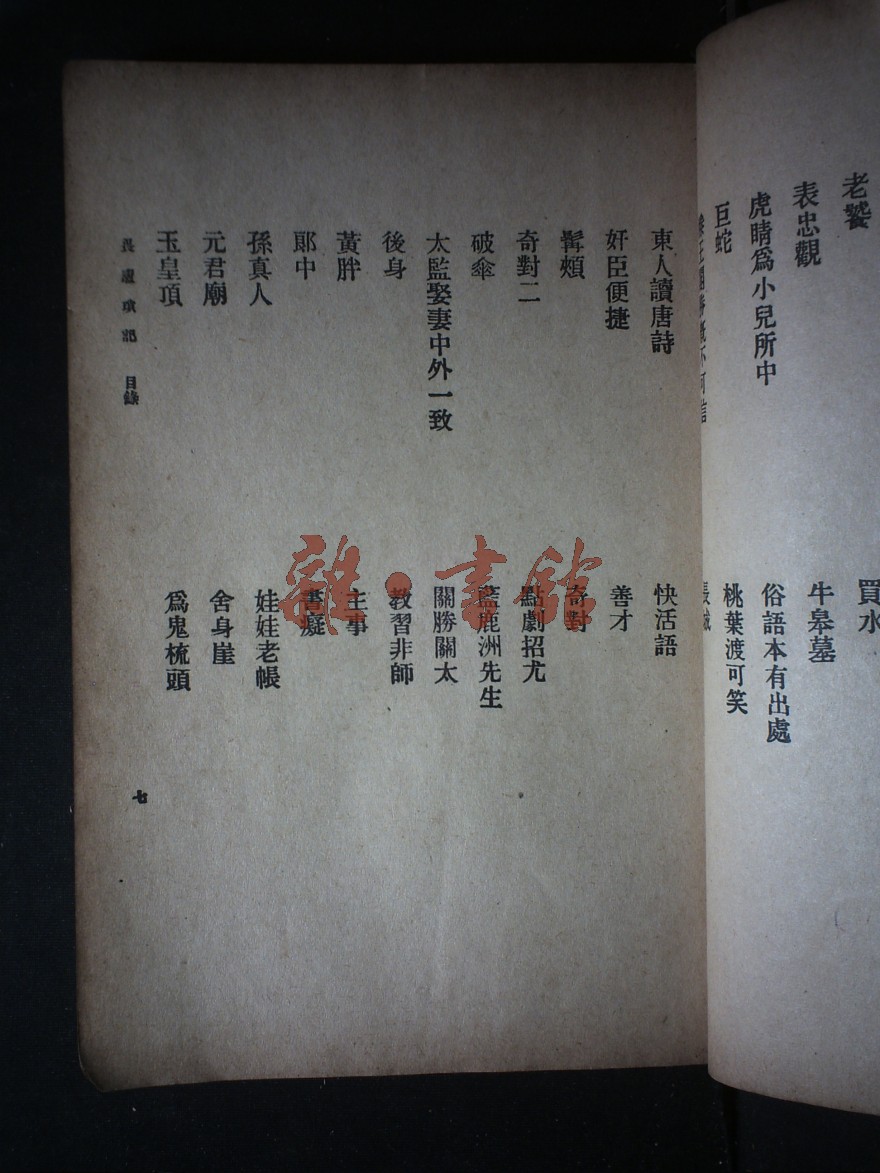 老
買水
表忠觀
牛皋墓
虎睛爲小兒所中
俗語本有出處
巨蛇
桃葉渡可笑
不可信
東人讀唐詩
快活語
奸臣便捷
善才
髯頰
奇對
奇對二
點劇招尤
破傘
藍鹿洲先生
太監娶妻中外一致
關勝關太
後身
教習非師
黃胖
主事
郞中
書癡
孫真人
娃娃老帳
元君廟
舍身崖
玉皇頂
爲鬼梳頭
目錄
七
雜·書館